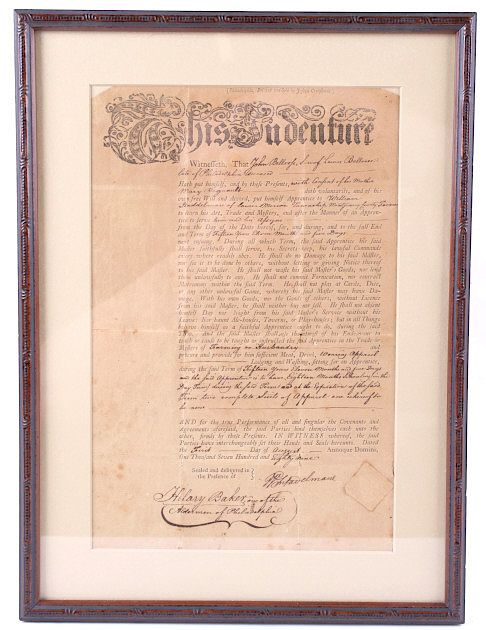 This Indenture
Witnesseth, That John Bellross, Son of
late of Philadelphia deceased
Hath put himself, and by these Presents, with Consent of his Mother
Mary doth voluntarily, and of his
own free Will and Accord, put himself Apprentice to William
of Lower Merion Township, Montgomery County
to learn his Art, Trade and Mystery, and after the Manner of an Apprentice
to serve him and his Assigns
from the Day of the Date hereof, for, and during, and to the full End
and Term of Fifteen Years Eleven Months and five Days
next ensuing. During all which Term, the said Apprentice his said
Master faithfully shall serve, his Secrets keep, his lawful Commands
every where readily obey. He shall do no Damage to his said Master,
nor see it to be done by others, without letting or giving Notice thereof
to his said Master. He shall not waste his said Master's Goods, nor lend
them unlawfully to any. He shall not commit Fornication, nor contract
Matrimony within the said Term. He shall not play at Cards, Dice,
or any other unlawful Game, whereby his said Master may have Damage.
With his own Goods, nor the Goods of others, without Licence
from his said Master, he shall neither buy nor sell. He shall not absent
himself Day nor Night from his said Master's Service without his
Leave: Nor haunt Ale-houses, Taverns, or Play-houses; but in all Things
behave himself as a faithful Apprentice ought to do, during the said
Term. And the said Master shall use the utmost of his Endeavour to
teach or cause to be taught or instructed the said Apprentice in the Trade or
Mystery of Farming or Husbandry and
procure and provide for him sufficient Meat, Drink, Wearing Apparel
Lodging and Washing, fitting for an Apprentice,
during the said Term of Fifteen Years Eleven Months and five Days
and the said Apprentice is to have Eighteen Months Schooling
during the said Term and at the Expiration of the said
Term two complete Suits of Apparel one whereof to
be new
AND for the true Performance of all and singular the Covenants and
Agreements aforesaid, the said Parties bind themselves each unto the
other, firmly by these Presents. IN WITNESS whereof, the said
Parties have interchangeably set their Hands and Seals hereunto. Dated
the First Day of August Annoque Domini,
One Thousand Seven Hundred and
Sealed and delivered in
the Presence of
Hilary Baker, one of the
Aldermen of Philadelphia